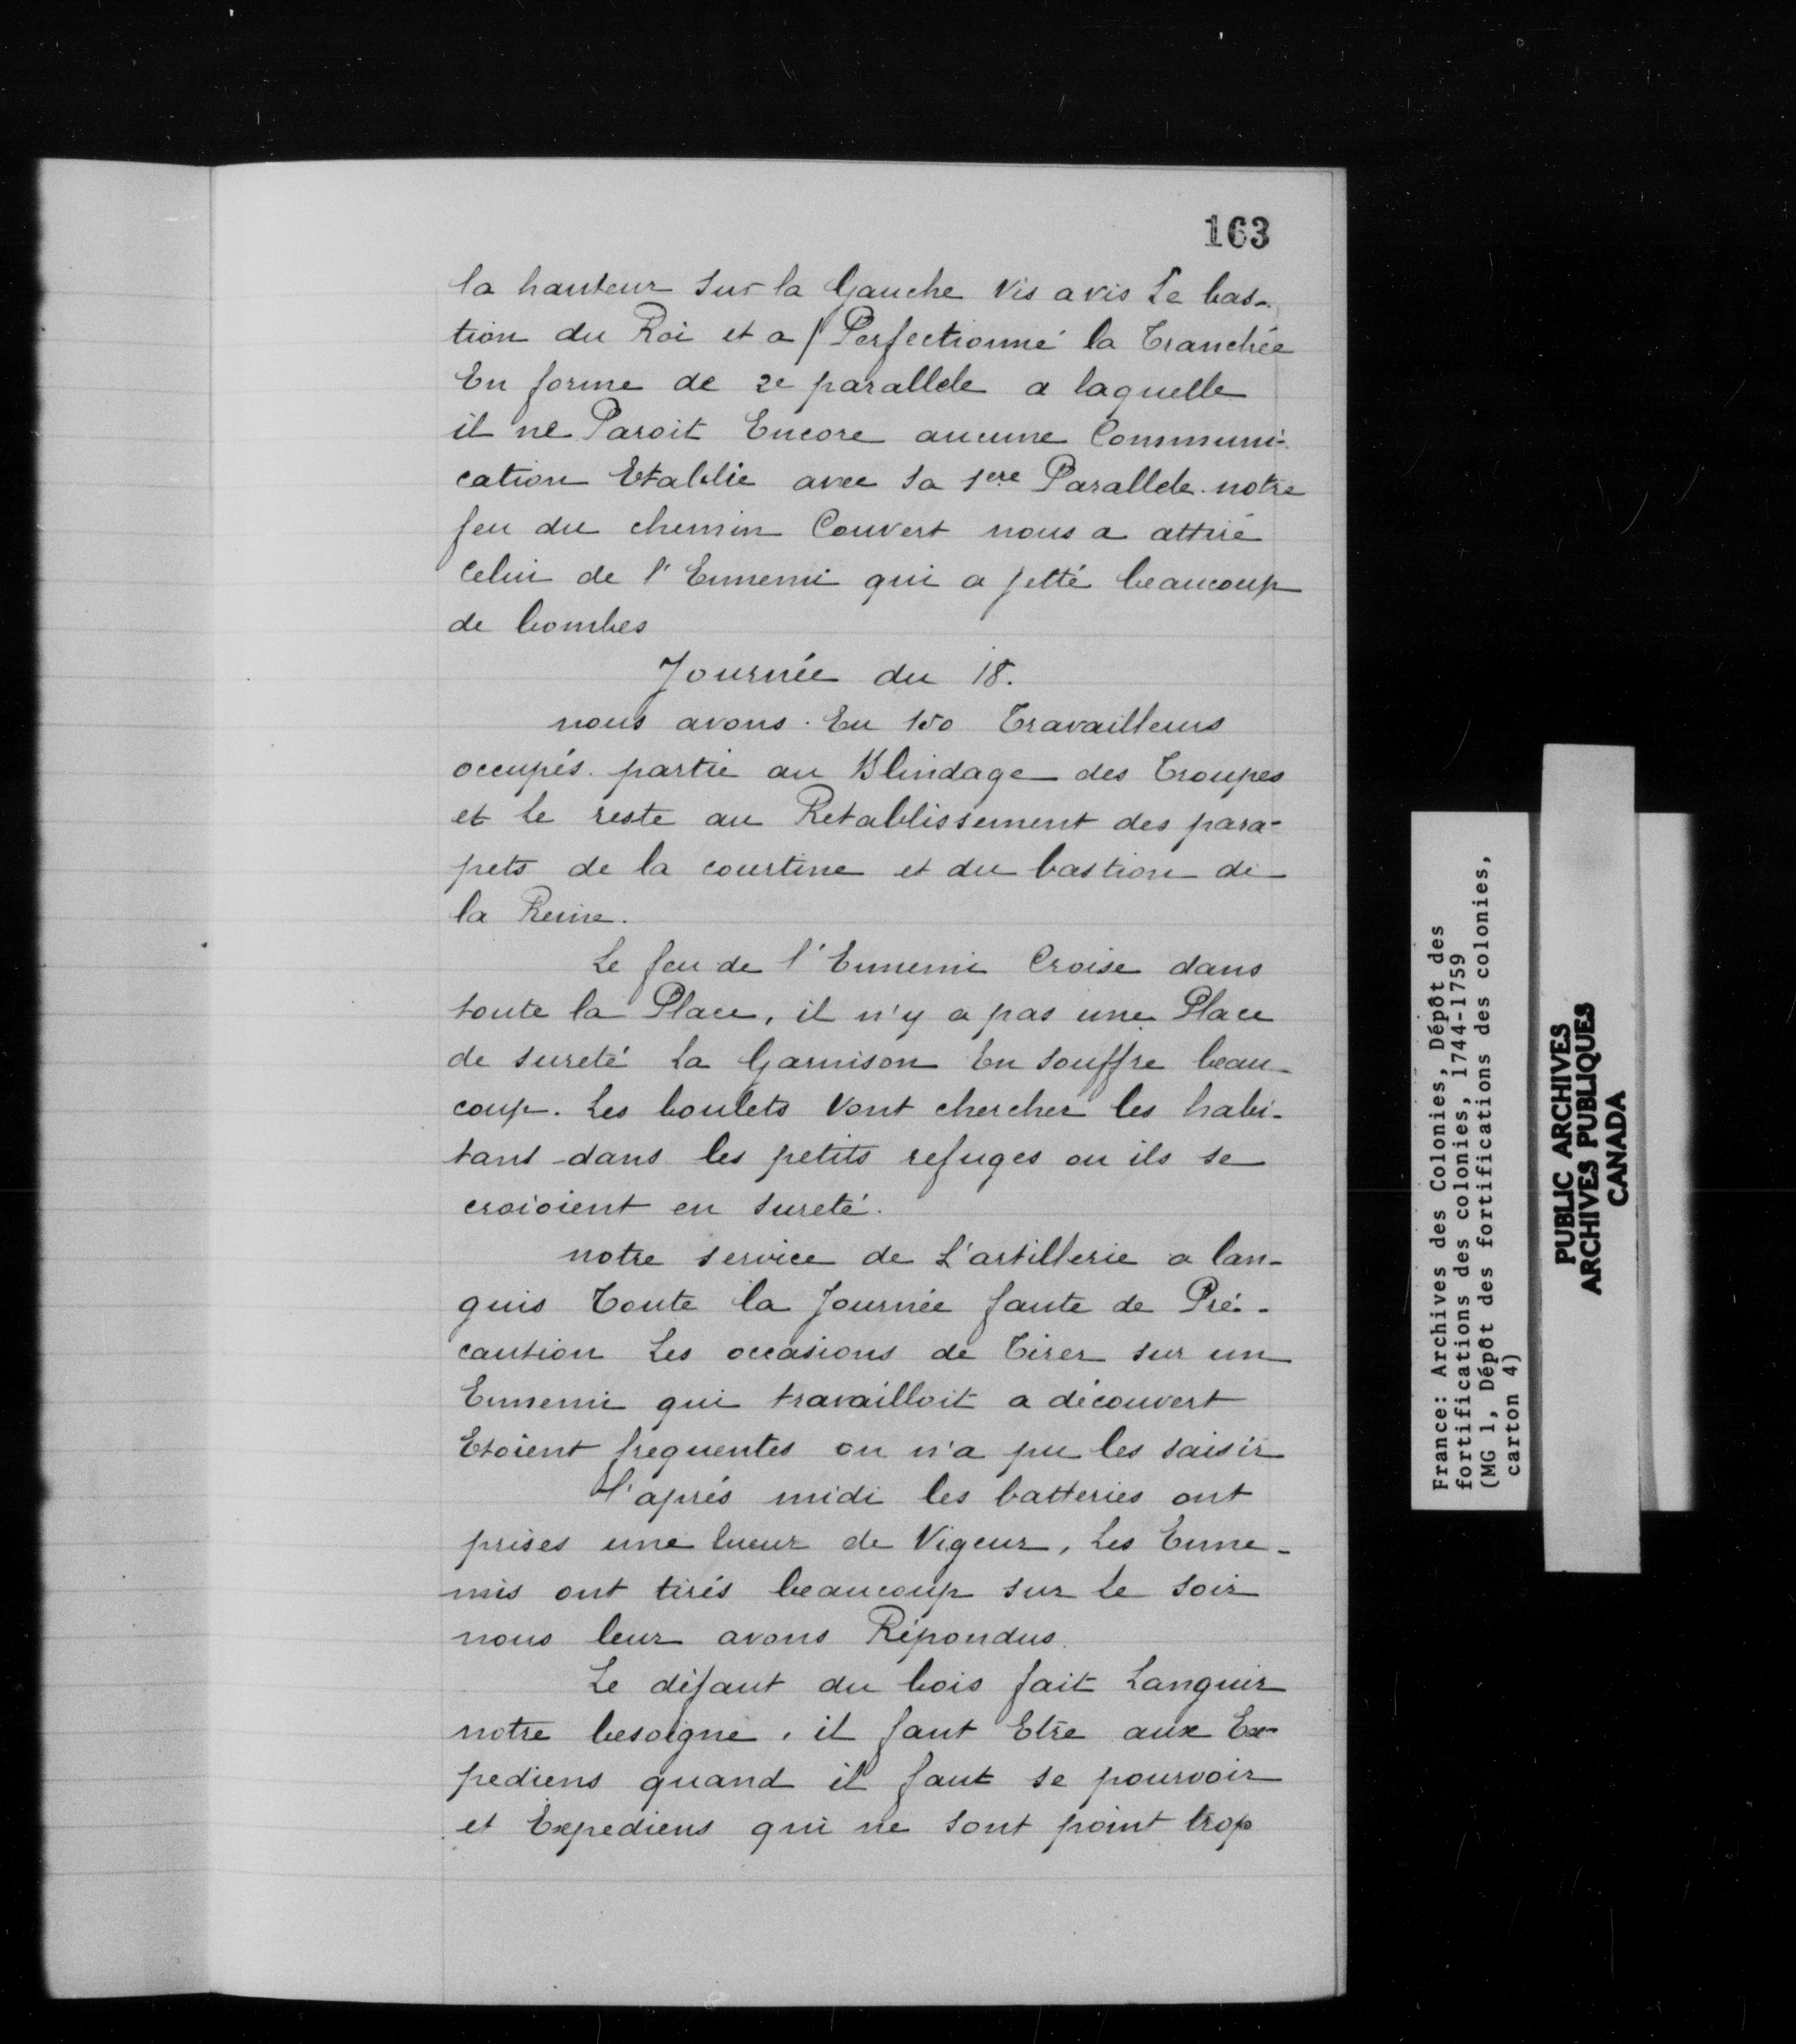 163
la hauteur sur la Gauche Vis a vis Le bas-
tion du Roi et a Perfectionné la Tranchée
En forme de 2e parallele a laquelle
il ne Paroit Encore aucune Communi-
cation Etablie avec sa 1ere Parallele. notre
feu du chemin Couvert nous a attiré
Celui de l'Ennemi qui a jetté beaucoup
de bombes
Journée du 18.
nous avons Eu 150 Travailleurs
occupés partie au Blindage des Troupes
et le reste au Retablissement des para-
pets de la courtine et du bastion de
la Reine.
Le feu de l'Ennemi Croise dans
toute la Place, il n'y a pas une Place
de sureté La Garnison En souffre beau-
coup. Les boulets Vont chercher les habi-
tans dans les petits refuges ou ils se
croioient en sureté.
notre service de L'artillerie a lan-
guis Toute la Journée faute de Pré-
caution Les occasions de Tirer sur un
Ennemi qui travailloit a découvert
Etoient frequentes on n'a pu les saisir
L'aprés midi les batteries ont
prises une lueur de Vigeur, Les Enne-
mis ont tirés beaucoup sur le soir
nous leur avons Répondus.
Le défaut du bois fait Languir
notre besoigne, il faut Etre aux Ex-
pediens quand il faut se pourvoir
et Expediens qui ne sont point trop
France: Archives des Colonies, Dépôt des
fortifications des colonies, 1744-1759
(MG 1, Dépôt des fortifications des colonies,
carton 4)
PUBLIC ARCHIVES
ARCHIVES PUBLIQUES
CANADA